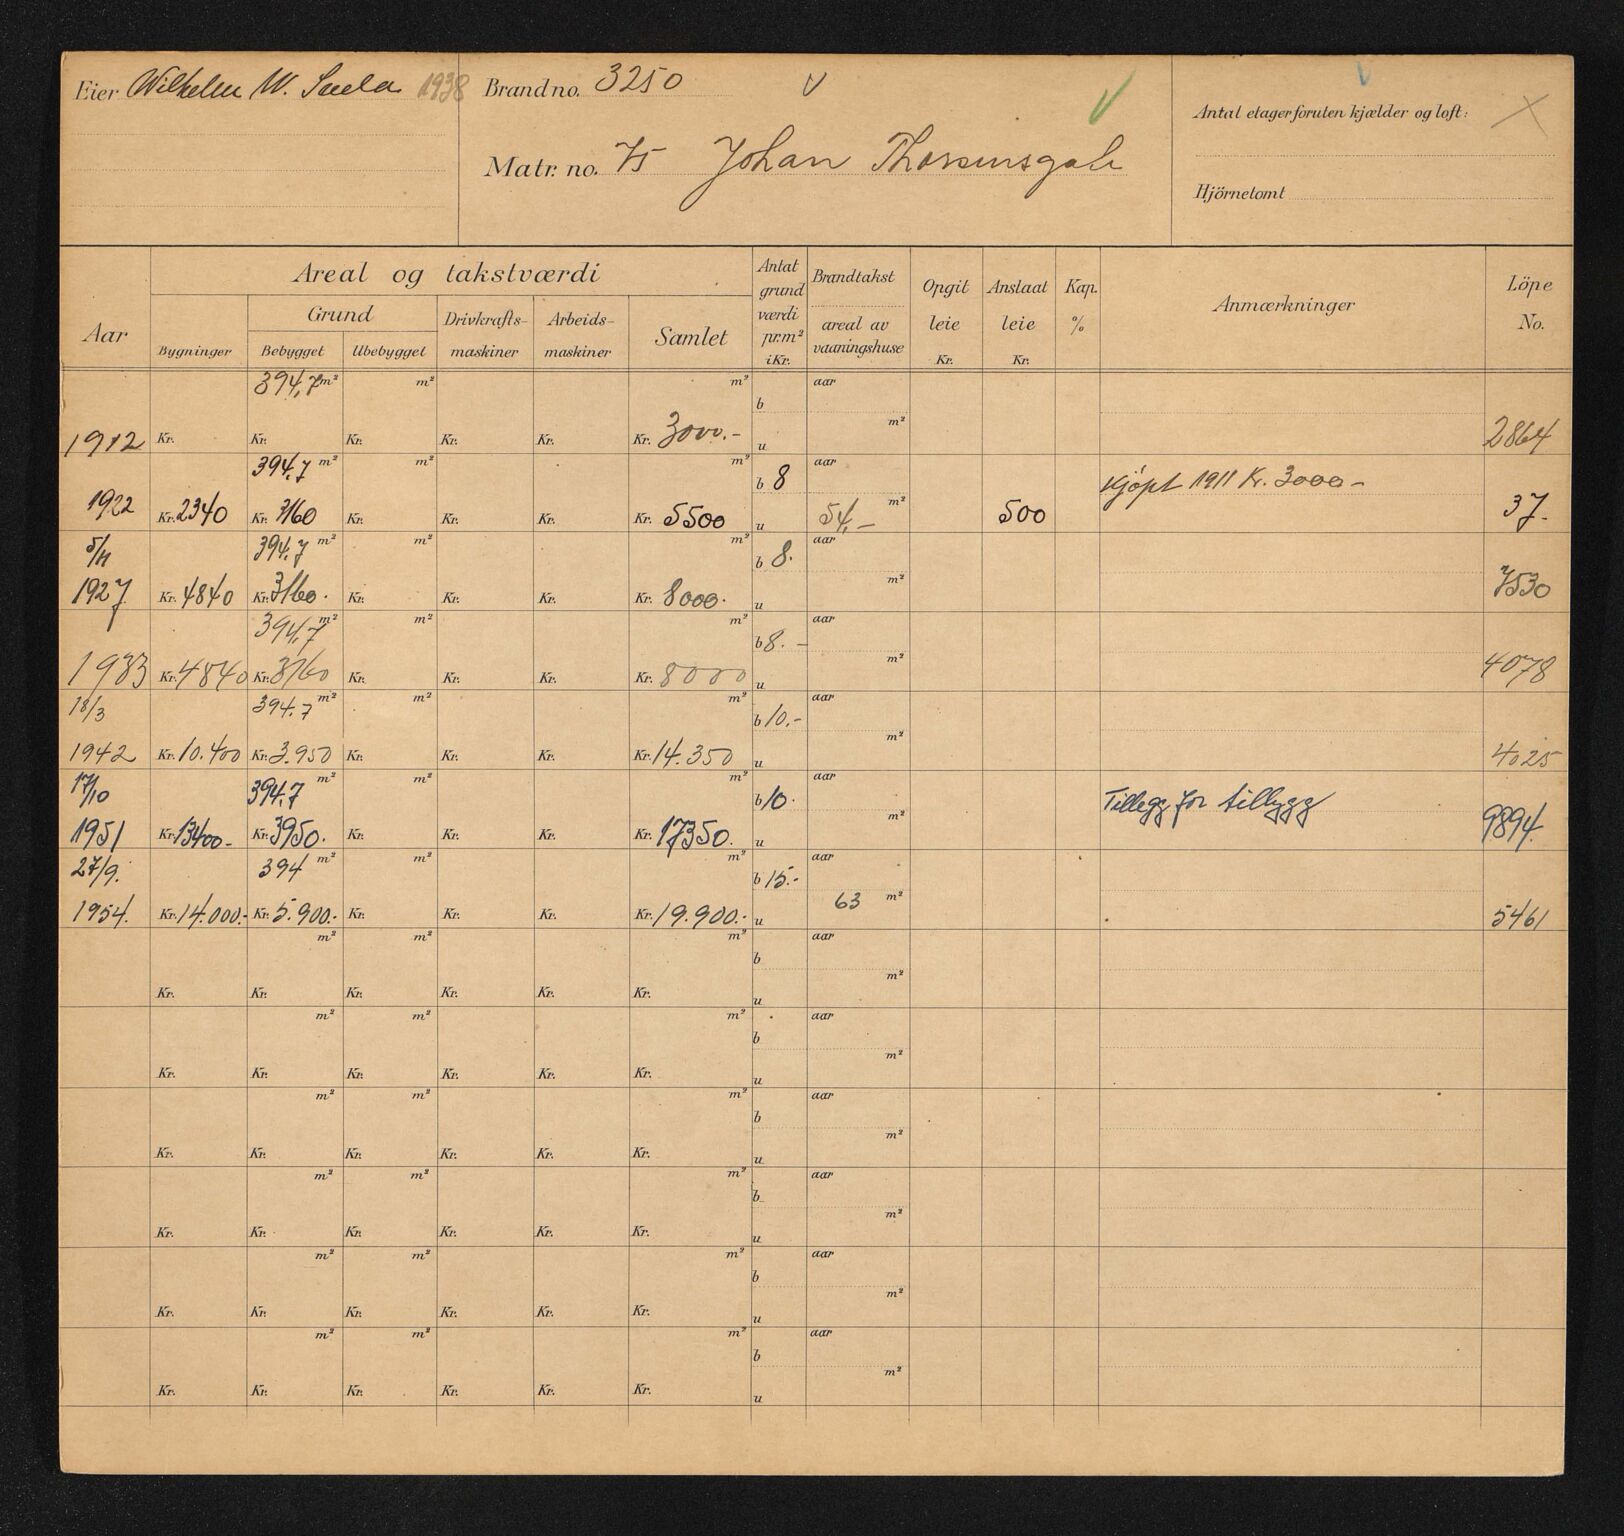 Eier Wilhelm W. 1938 Brand no. 3250
Antal etager foruten kjælder og loft:
Matr. no. 75 Johan
Hjörnetomt
Areal og takstværdi
Aar
Bygninger
Grund
Bebygget
Ubebygget
Drivkrafts-
maskiner
Arbeids-
maskiner
Samlet
Antat
grund
værdi
pr. m²
i Kr.
Brandtakst
areal av
vaaningshuse
Opgit
leie
Kr.
Anslaat
leie
Kr.
Kap.
%
Anmærkninger
Löpe
No.
394,7 m² m² m² b aar
1912 Kr. Kr. Kr. Kr. Kr. Kr. 3000.- u m² 2864
394,7 m² m² m² b 8 aar Kjöpt 1911 Kr. 3000-
1922 Kr. 2340 Kr. 3160 Kr. Kr. Kr. Kr. 5500 u 54,- m² 500 37.
5/11 394.7 m² m² m² b 8. aar
1927 Kr. 4840 Kr. 3160. Kr. Kr. Kr. Kr. 8000. u m² 7530
394,7 m² m² m² b 8.- aar
1933 Kr. 4840 Kr. 3160 Kr. Kr. Kr. Kr. 8000 u m² 4078
18/3 394.7 m² m² m² b 10.- aar
1942 Kr. 10.400 Kr. 3.950 Kr. Kr. Kr. Kr. 14.350 u m² 4025
17/10 394.7 m² m² m² b 10. aar Tillegg for tilbygg
1951 Kr. 13400- Kr. 3950. Kr. Kr. Kr. Kr. 17350. u m² 9894.
27/9. 394 m² m² m² b 15.- aar
1954. Kr. 14.000.- Kr. 5.900.- Kr. Kr. Kr. Kr. 19.900.- u 63 m² 5461
m² m² m² b aar
Kr. Kr. Kr. Kr. Kr. Kr. u m²
m² m² m² b aar
Kr. Kr. Kr. Kr. Kr. Kr. u m²
m² m² m² b aar
Kr. Kr. Kr. Kr. Kr. Kr. u m²
m² m² m² b aar
Kr. Kr. Kr. Kr. Kr. Kr. u m²
m² m² m² b aar
Kr. Kr. Kr. Kr. Kr. Kr. u m²
m² m² m² b aar
Kr. Kr. Kr. Kr. Kr. Kr. u m²